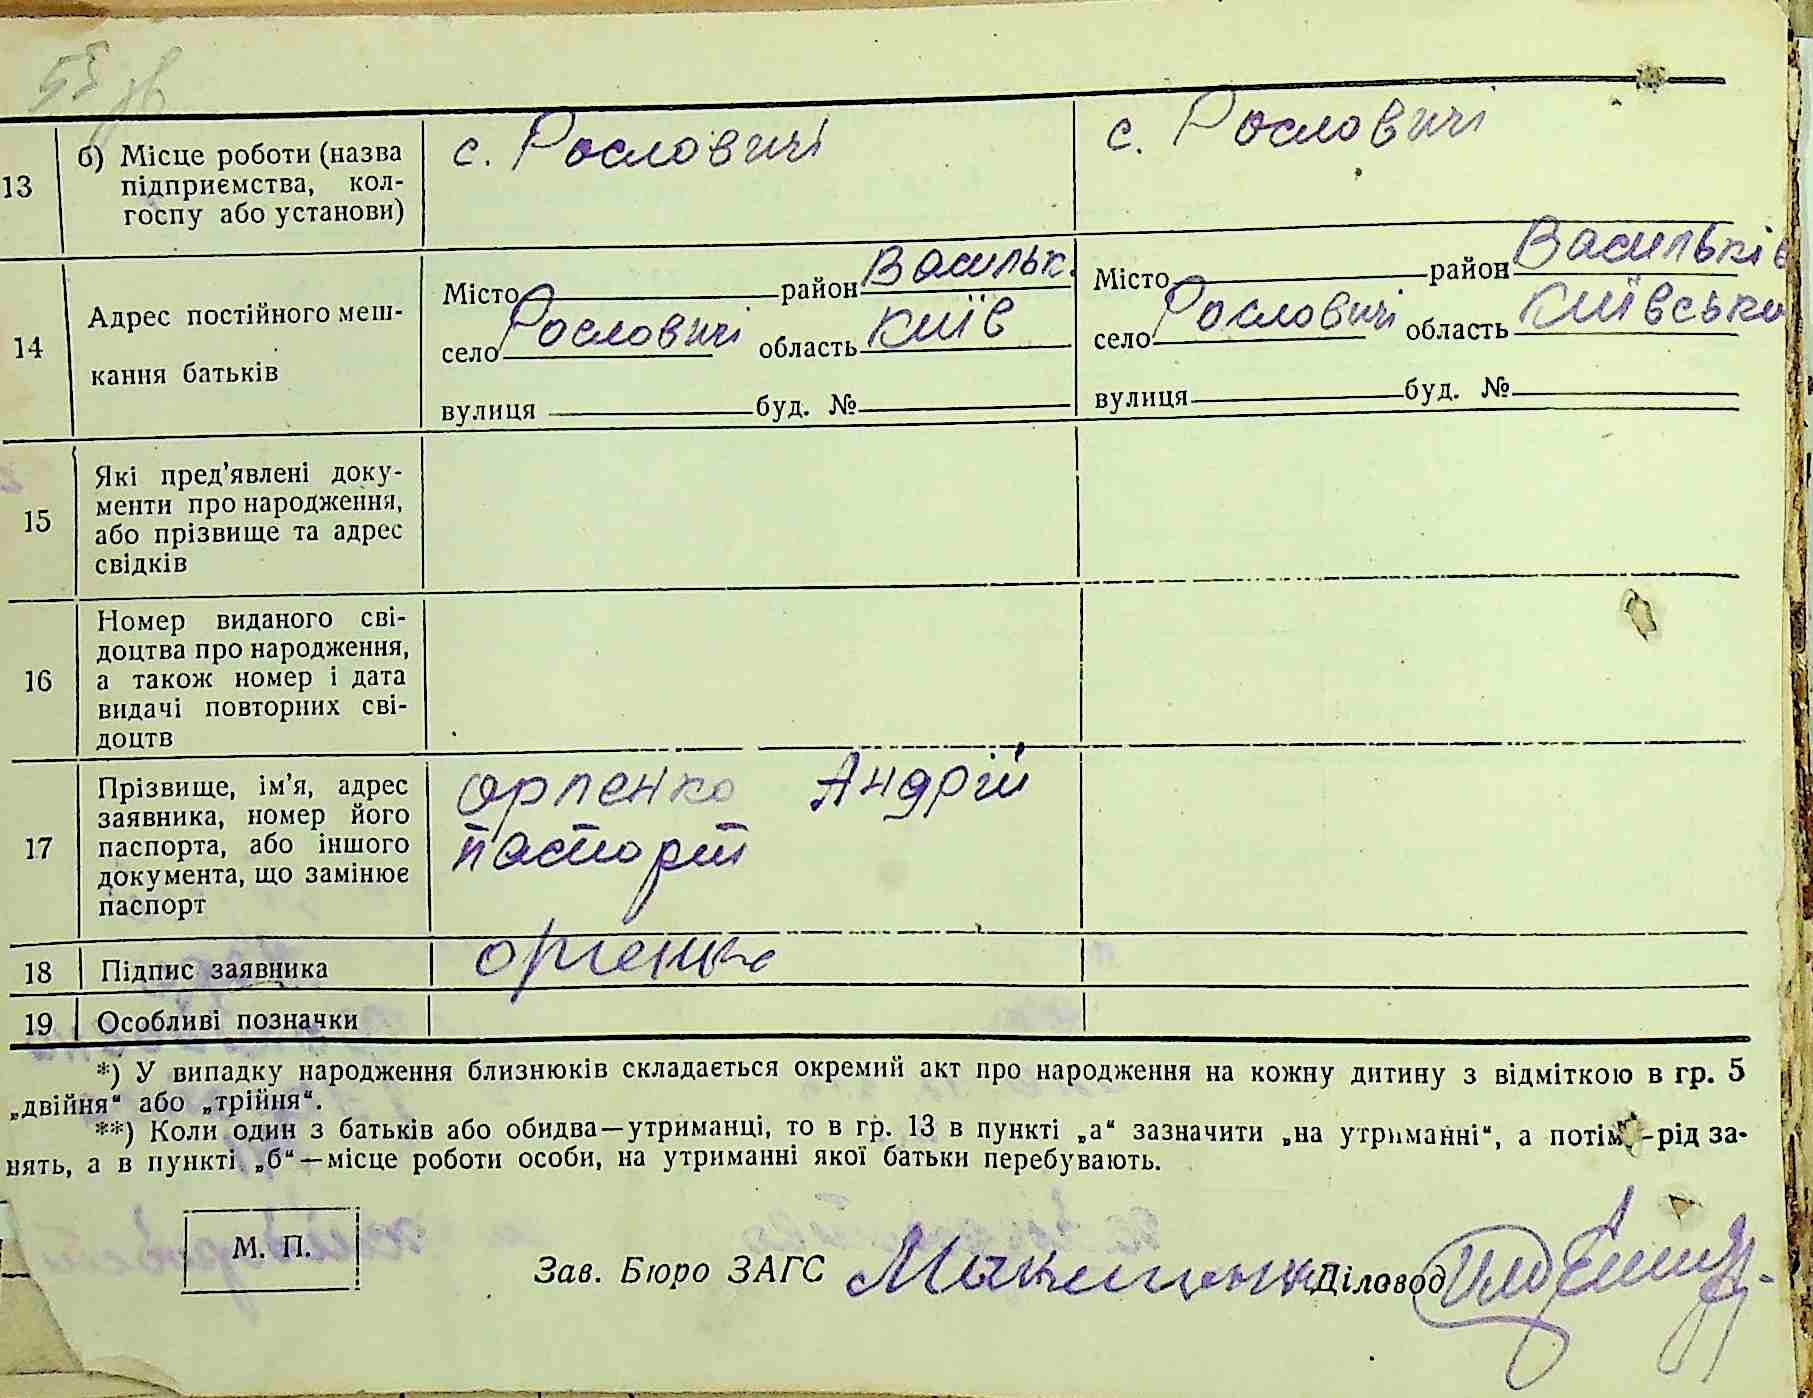 55 зв
13 б) Місце роботи (назва підприємства, кол-госпу або установи) с. Рословичі с. Рословичі
14 Адрес постійного меш-кання батьків
Місто район Васильк.
село Рословичі область Київ
вулиця буд. №
Місто район Васильків
село Рословичі область Київська
вулиця буд. №
15 Які пред’явлені доку-
менти про народження,
або прізвище та адрес
свідків
16 Номер виданого сві-
доцтва про народження,
а також номер і дата
видачі повторних сві-
доцтв
17 Прізвище, ім’я, адрес
заявника, номер його
паспорта, або іншого
документа, що замінює
паспорт
Андрій
паспорт
18 Підпис заявника
19 Особливі позначки
*) У випадку народження близнюків складається окремий акт про народження на кожну дитину з відміткою в гр. 5
„двійня“ або „трійня“.
**) Коли один з батьків або обидва—утриманці, то в гр. 13 в пункті „а“ зазначити „на утриманні“, а потім -рід за-
нять, а в пункті „б“—місце роботи особи, на утриманні якої батьки перебувають.
М. П.
Зав. Бюро ЗАГС Діловод